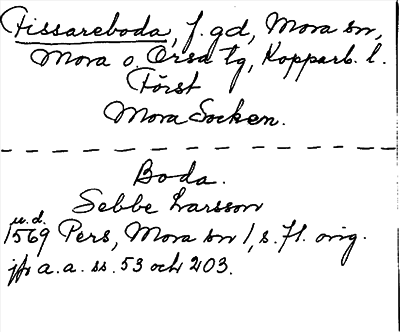 Fissareboda, f. gd, Mora sn,
Mora o. Orsa tg, Kopparb. l.
Först
Mora Socken.
Boda.
Sebbe Larsson
u. d.
1569 Pers, Mora sn 1, s. 71. orig.
jfr a. a. ss. 53 och 203.